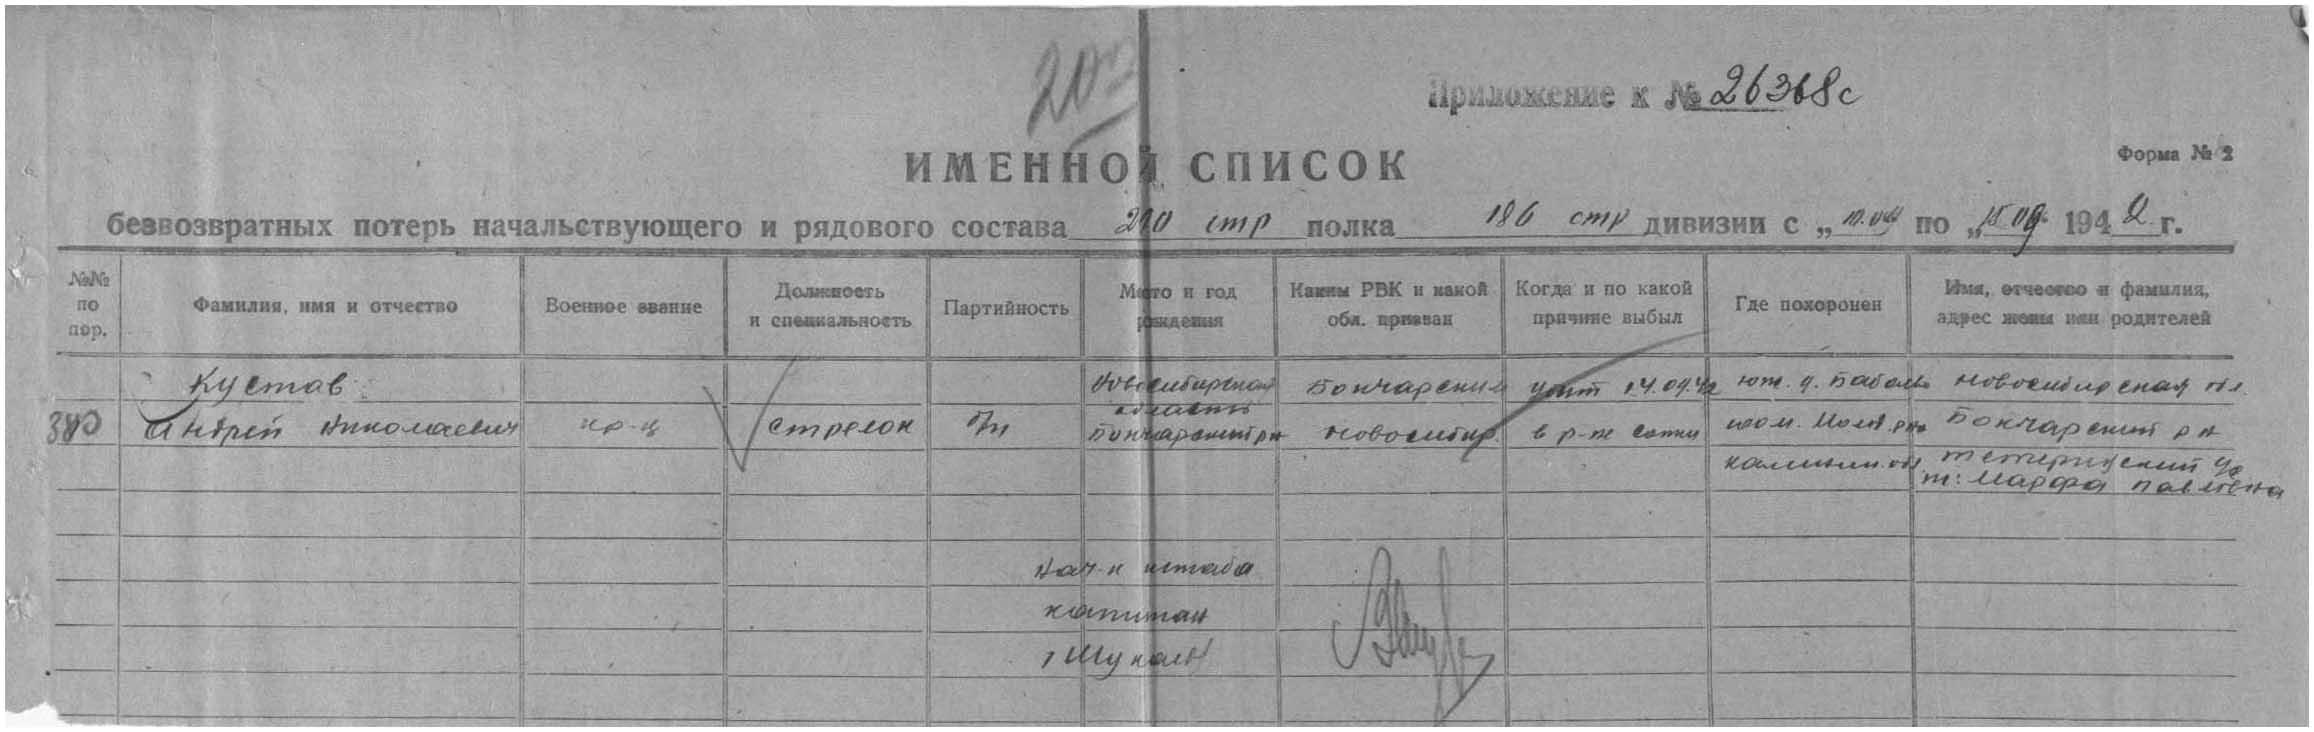 20
Приложение к № 26368с
Форма № 2
ИМЕННОЙ СПИСОК
безвозвратных потерь начальствующего и рядового состава 290 стр полка 186 стр дивизии с „10.04 по „15 09 1942 г.
№№ по пор.
Фамилия, имя и отчество
Военное звание
Должность и специальность
Партийность
Место и год рождения
Каким РВК и какой обл. призван
Когда и по какой причине выбыл
Где похоронен
Имя, отчество и фамилия, адрес жены или родителей
Кустав Новосибирская Бончарским убит 14.04.42 юж. д. новосибирская обл.
область
380 Андрей Николаевич кр-ц стрелок б/п Бончарский рн новосибир. в р-не Бончарский р н
калинин. обл
т: Марфа Павловна
Нач-к штаба
капитан